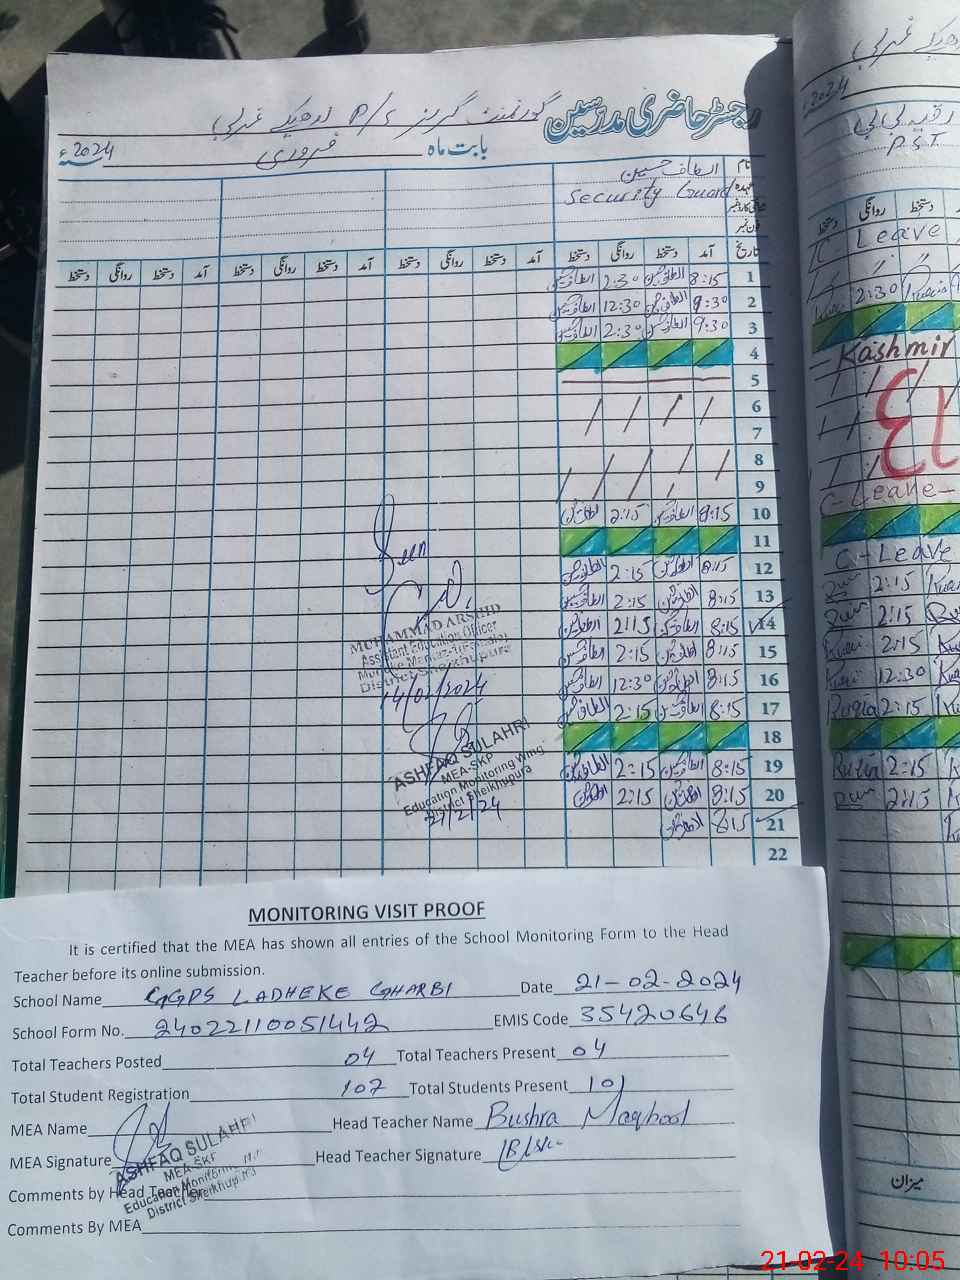 رجسٹر حاضری مدرسین گورنمنٹ گرلز P/S لدھیکے غربی
بابت ماہ فروری 2024ء
نام الطاف حسین
عہدہ Security Guard
شناختی کارڈ نمبر
فون نمبر
تاریخ آمد دستخط روانگی دستخط آمد دستخط روانگی دستخط آمد دستخط روانگی دستخط آمد دستخط روانگی دستخط
1 8:15 الطاف حسین 2:30 الطاف حسین
2 9:30 الطاف حسین 12:30 الطاف حسین
3 9:30 الطاف حسین 2:30 الطاف حسین
4
5
6
7
8
9
10 8:15 الطاف حسین 2:15 الطاف حسین
11
12 8:15 الطاف حسین 2:15 الطاف حسین
13 8:15 الطاف حسین 2:15 الطاف حسین
14 8:15 الطاف حسین 2:15 الطاف حسین
15 8:15 الطاف حسین 2:15 الطاف حسین
16 8:15 الطاف حسین 12:30 الطاف حسین
17 8:15 الطاف حسین 2:15 الطاف حسین
18
19 8:15 الطاف حسین 2:15 الطاف حسین
20 8:15 الطاف حسین 2:15 الطاف حسین
21 8:15 الطاف حسین
22
Seen
MUHAMMAD ARSHD
Assistant Education Officer
District Sheikhupura
14/02/2024
ASHFAQ SULAHRI
MEA-SKP
Education Monitoring Wing
District Sheikhupura
21/2/24
2024ء
P.S.T.
دستخط روانگی دستخط
C Leave
2:30
Kashmir
C-Leave-
C-Leave
2:15
2:15
2:15
12:30
2:15
2:15
2:15
میزان
MONITORING VISIT PROOF
It is certified that the MEA has shown all entries of the School Monitoring Form to the Head
Teacher before its online submission.
School Name GGPS LADHEKE GHARBI Date 21-02-2024
School Form No. 24022110051442 EMIS Code 35420646
Total Teachers Posted 04 Total Teachers Present 04
Total Student Registration 107 Total Students Present 101
MEA Name Head Teacher Name Bushra Maqbool
MEA Signature Head Teacher Signature
ASHFAQ SULAHRI
MEA-SKP
Education Monitoring
District Sheikhupura
Comments by Head Teacher
Comments By MEA
21-02-24 10:05